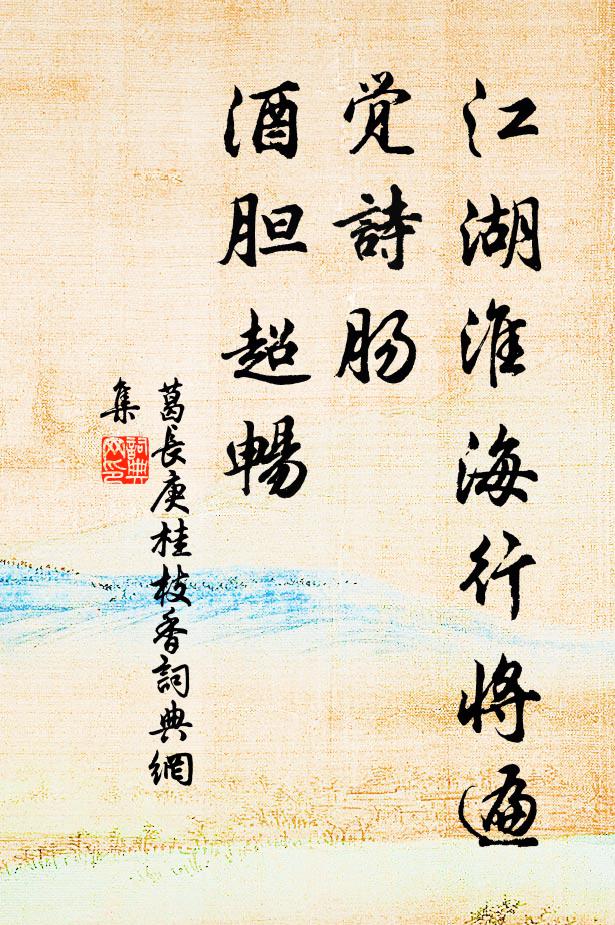 江湖淮海行将遍
觉詩肠
酒胆超暢
葛長庚桂枝香詞典網
集
詞典
文印